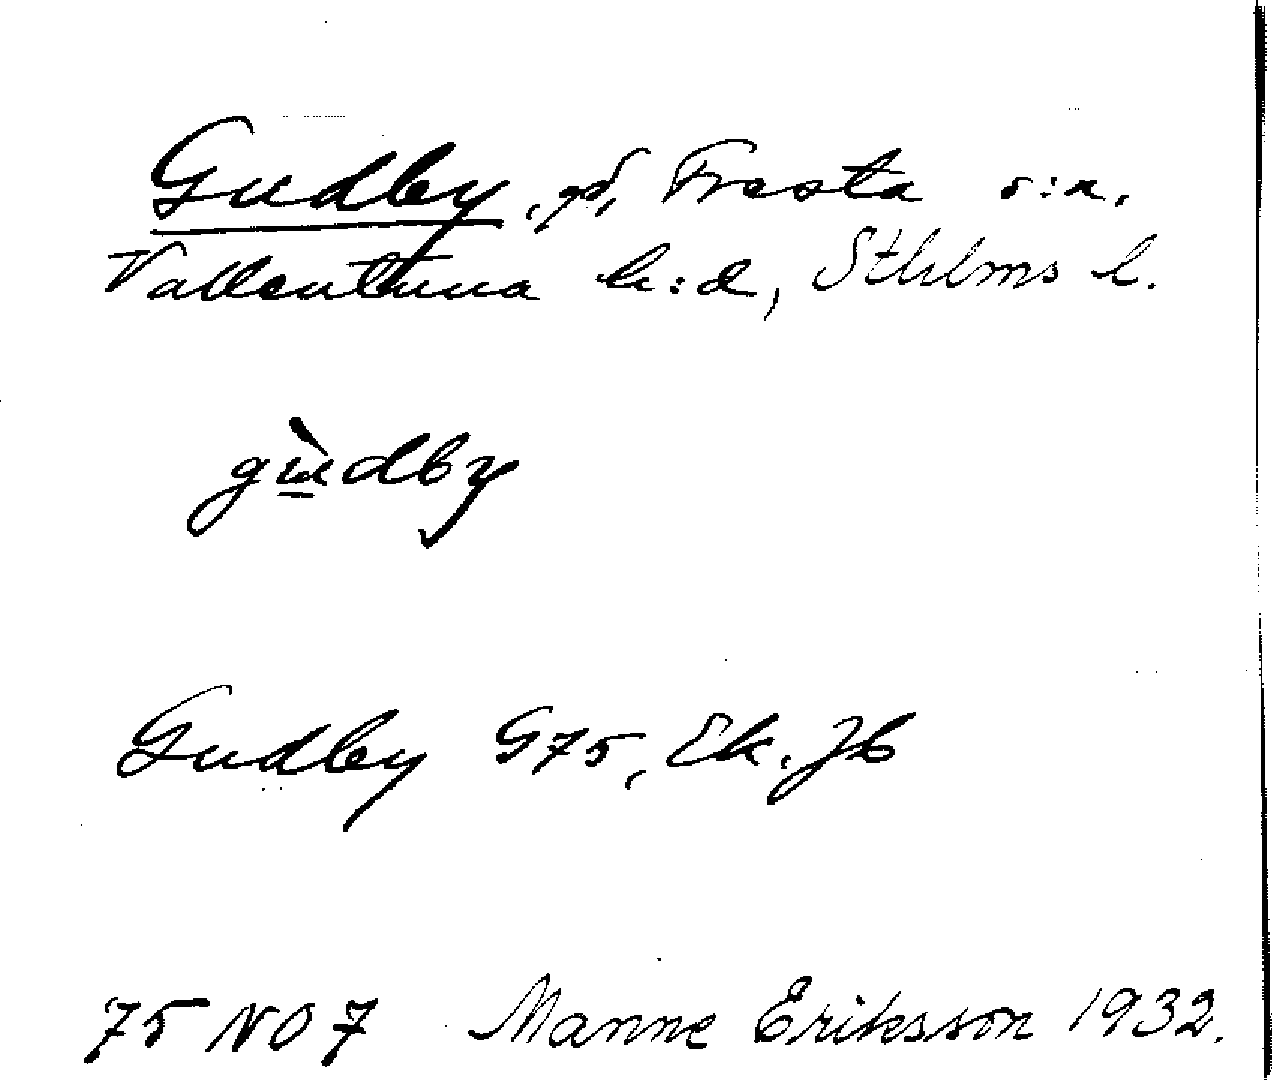 Gudby, gd, Fresta s:n,
Vallentuna h:d, Sthlms l.
gùdby
Gudby G75, Ek. Jb
75 NO 7 Manne Eriksson 1932.